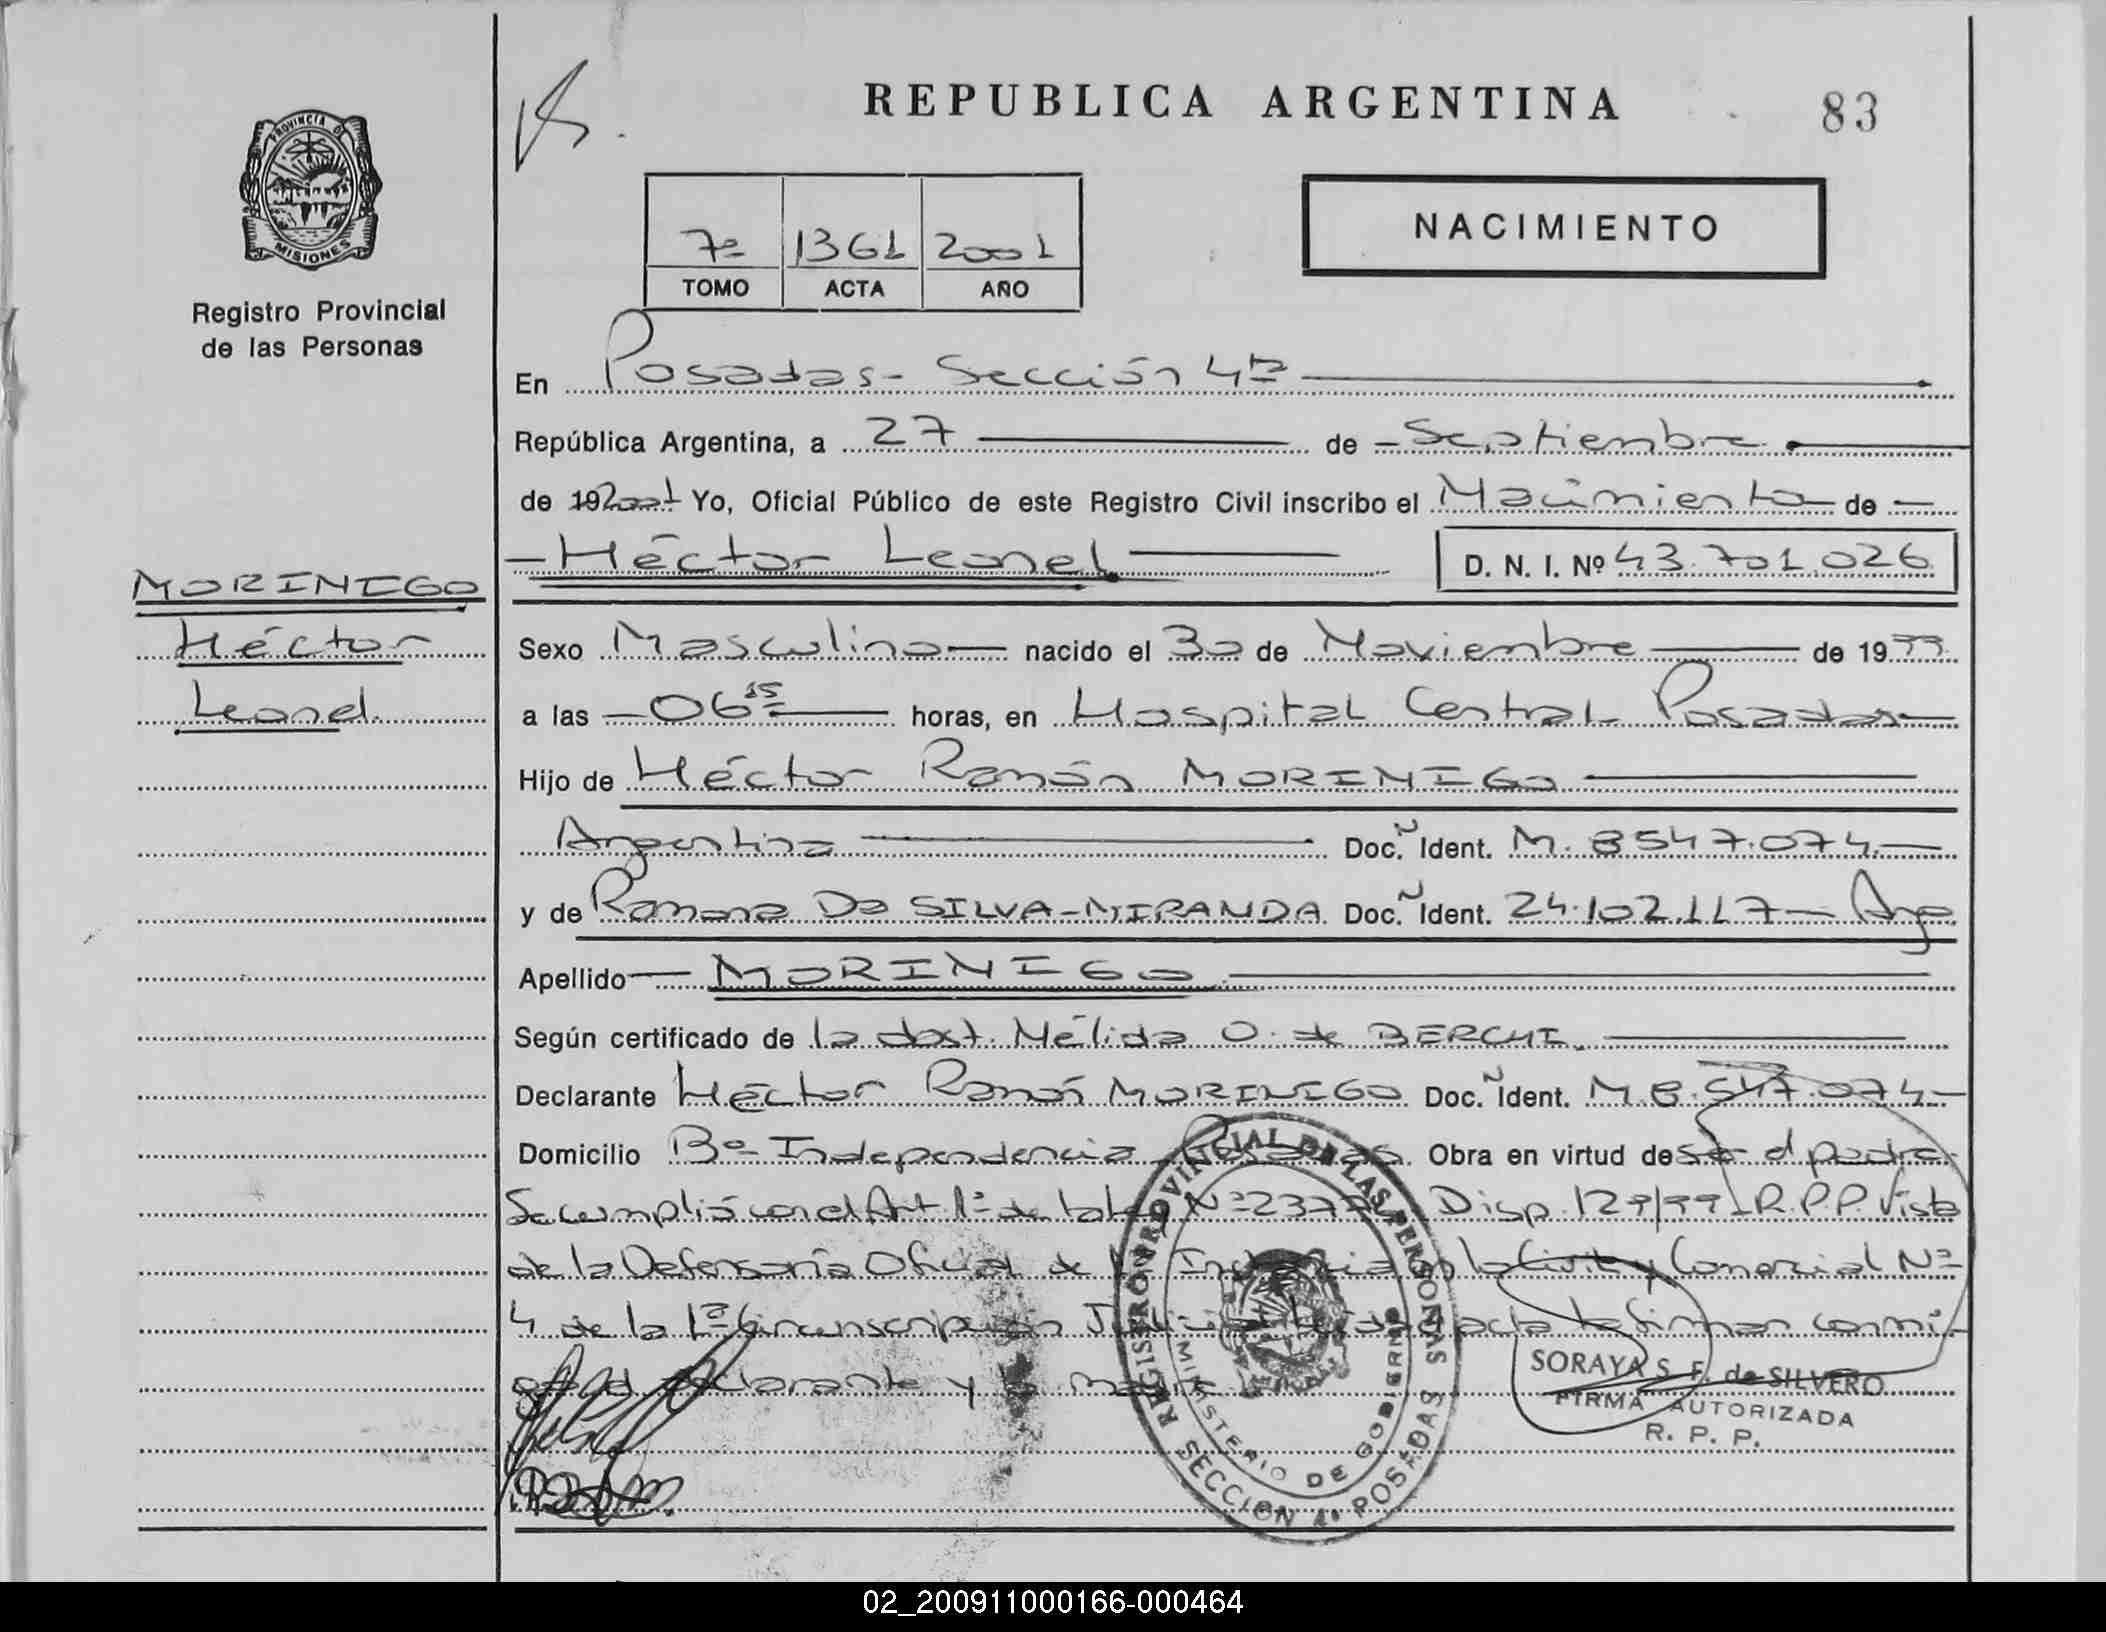 REPUBLICA ARGENTINA
83
PROVINCIA DE
MISIONES
Registro Provincial
de las Personas
NACIMIENTO
7º 1361 2001
TOMO ACTA AÑO
En Posadas - Sección 4ta
República Argentina, a 27 de Septiembre
de 192001 Yo, Oficial Público de este Registro Civil inscribo el Nacimiento de
Héctor Leonel D. N. I. Nº 43.701.026
MORINIGO
Héctor
Leonel
Sexo Masculino nacido el 30 de Noviembre de 1999
a las 06 15 horas, en Hospital Central Posadas
Hijo de Héctor Ramón MORINIGO
Argentina Doc. Ident. M. 8547.074
y de Ramona Da SILVA-MIRANDA Doc. Ident. 24.102.117 - Arg
Apellido MORINIGO
Según certificado de la dost. Nélida O. de BERCHI.
Declarante Héctor Ramón MORINIGO Doc. Ident. M. 8.547.074
Domicilio Bº Independencia Posadas. Obra en virtud de Ser el padre
Se cumplió con el Art. 1º de la Ley Nº Disp. 129/99 R.P.P. Vista
de la Defensoría Oficial de Civil y Comercial Nº
4 de la 1ª Circunscripción acta la firman conmi
go el declarante y la madre
REGISTRO PROVINCIAL DE LAS PERSONAS
MINISTERIO DE GOBIERNO
SECCION 4º POSADAS
SORAYA S. F. de SILVERO
FIRMA AUTORIZADA
R. P. P.
02_200911000166-000464